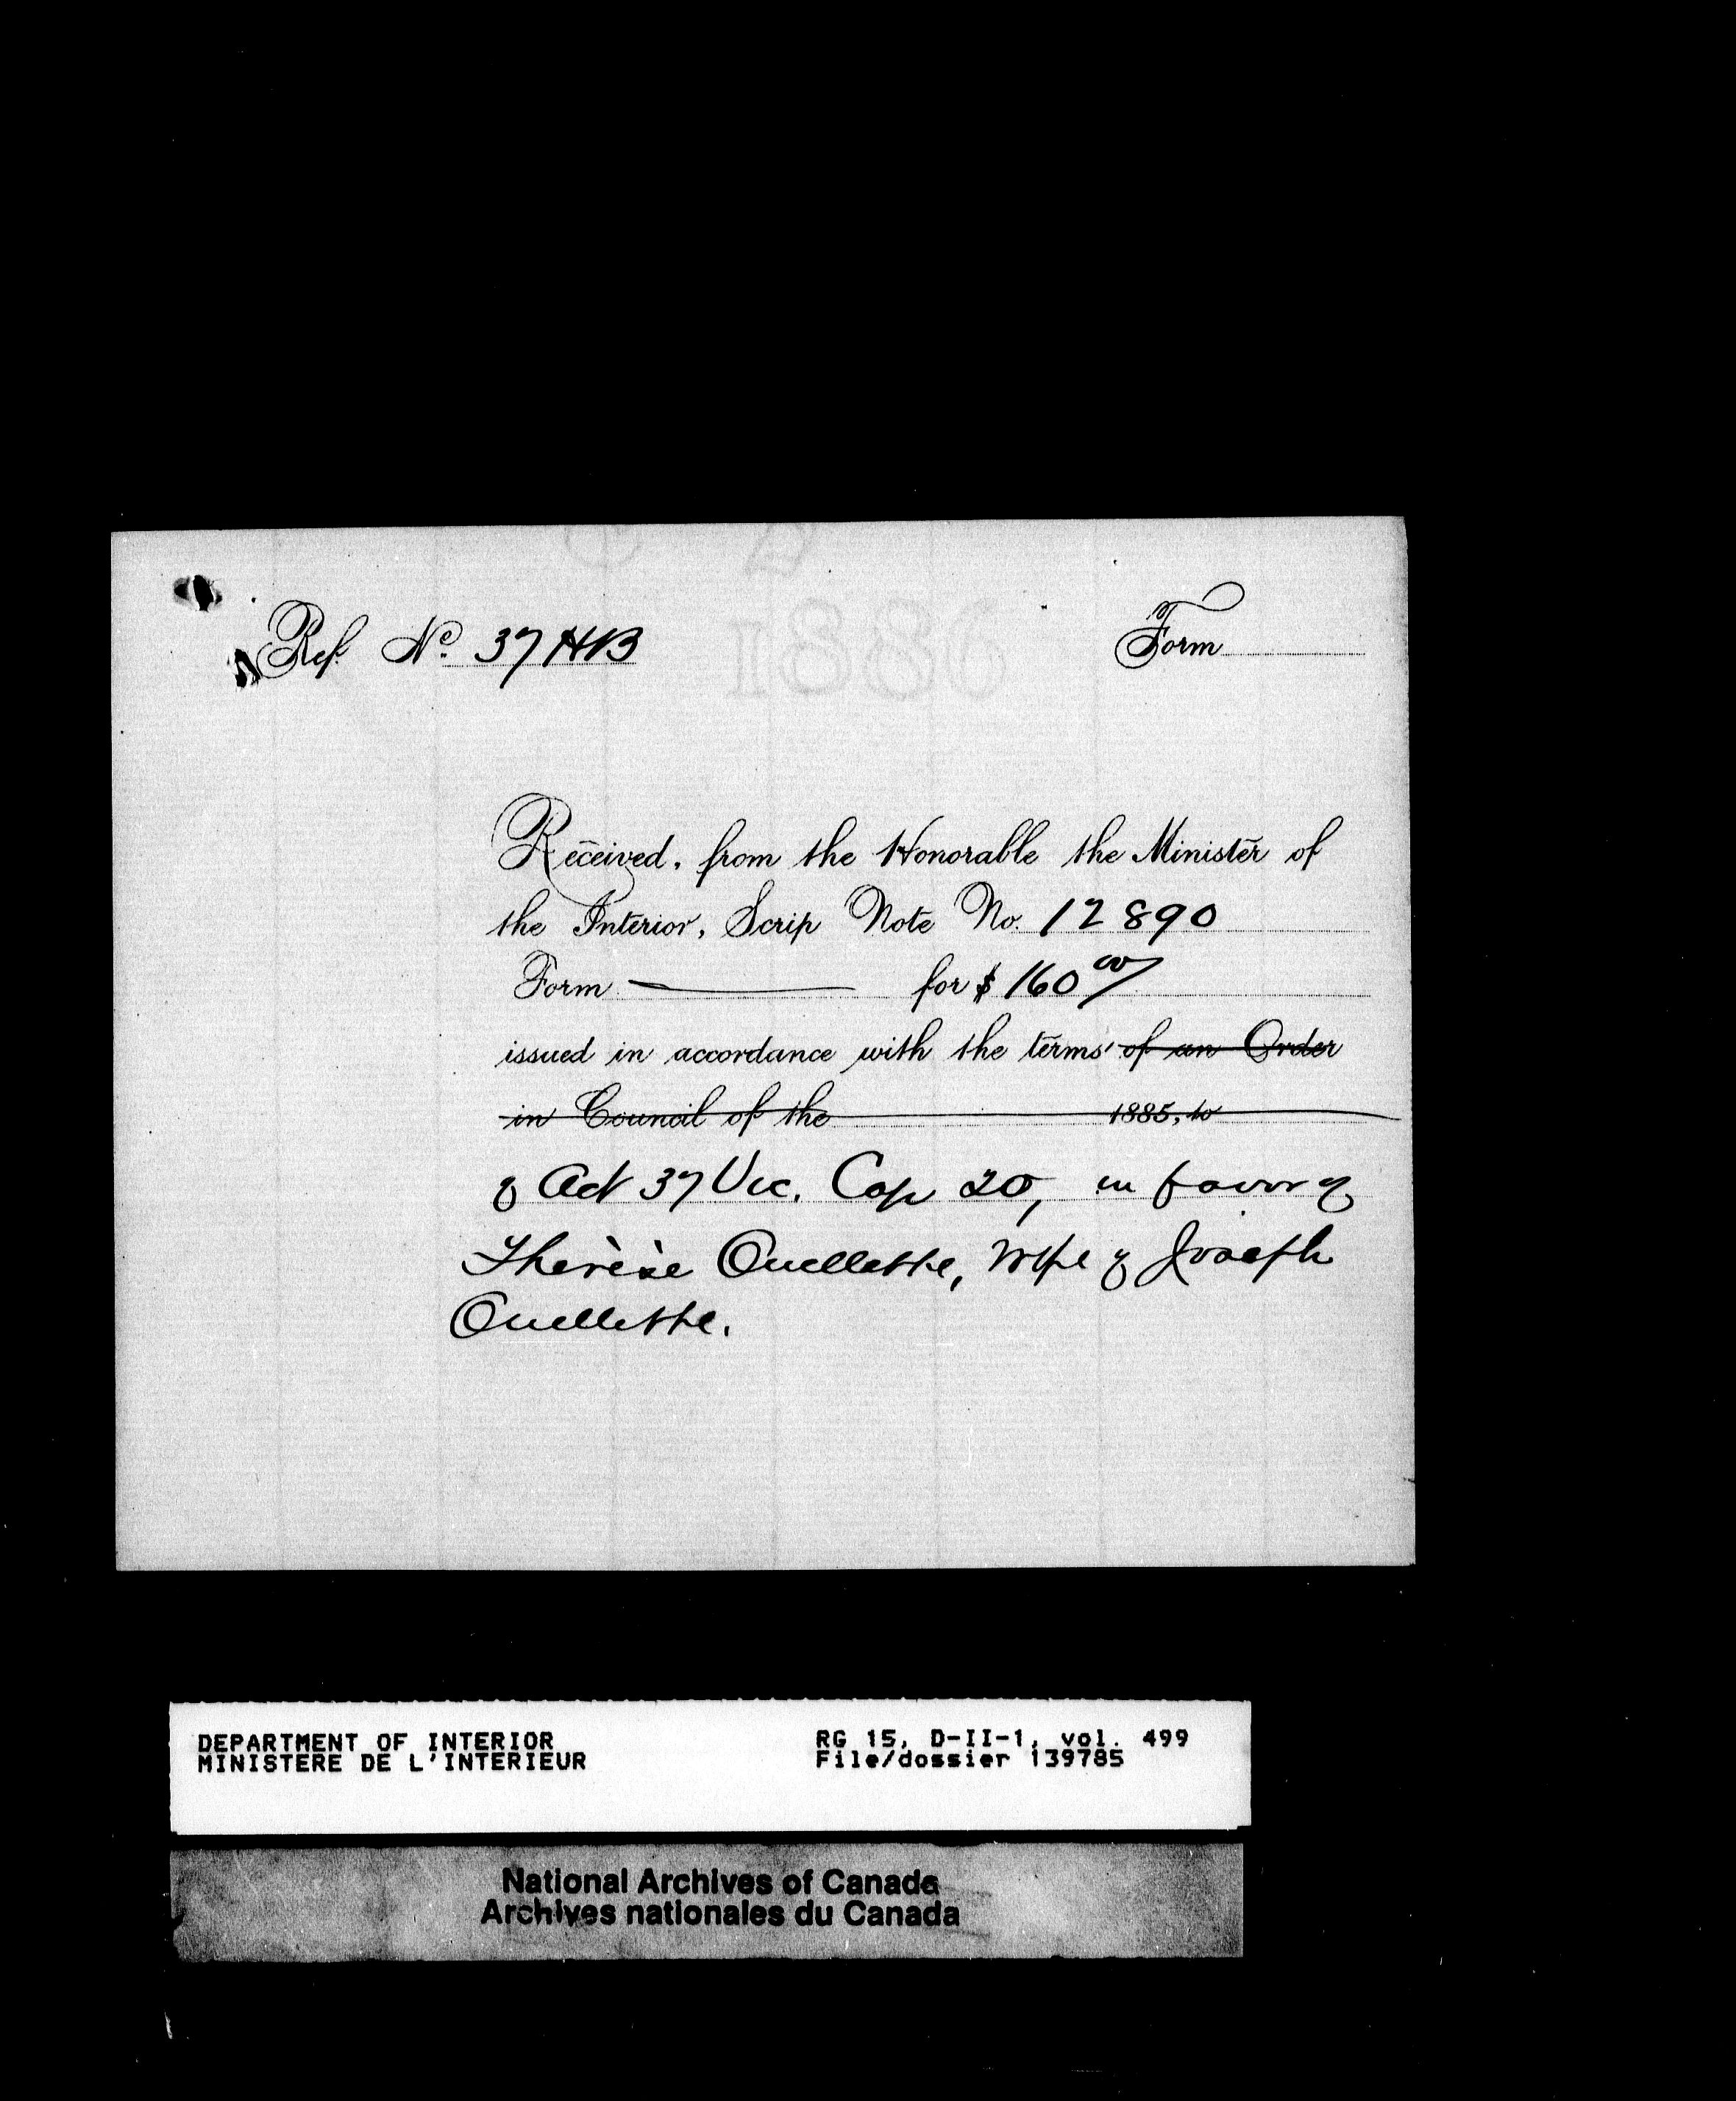 Ref. No. 37 HB
Form
Received, from the Honorable the Minister of
the Interior, Scrip Note No. 12890
Form — for $ 160 00/
issued in accordance with the terms of an Order
in Council of the 1885, to
of Act 37 Vic. Cap 20, in favor of
Thérèse Ouellette, Wife of Joseph
Ouellette.
DEPARTMENT OF INTERIOR
MINISTERE DE L'INTERIEUR
RG 15, D-II-1, vol. 499
File/dossier 139785
National Archives of Canada
Archives nationales du Canada